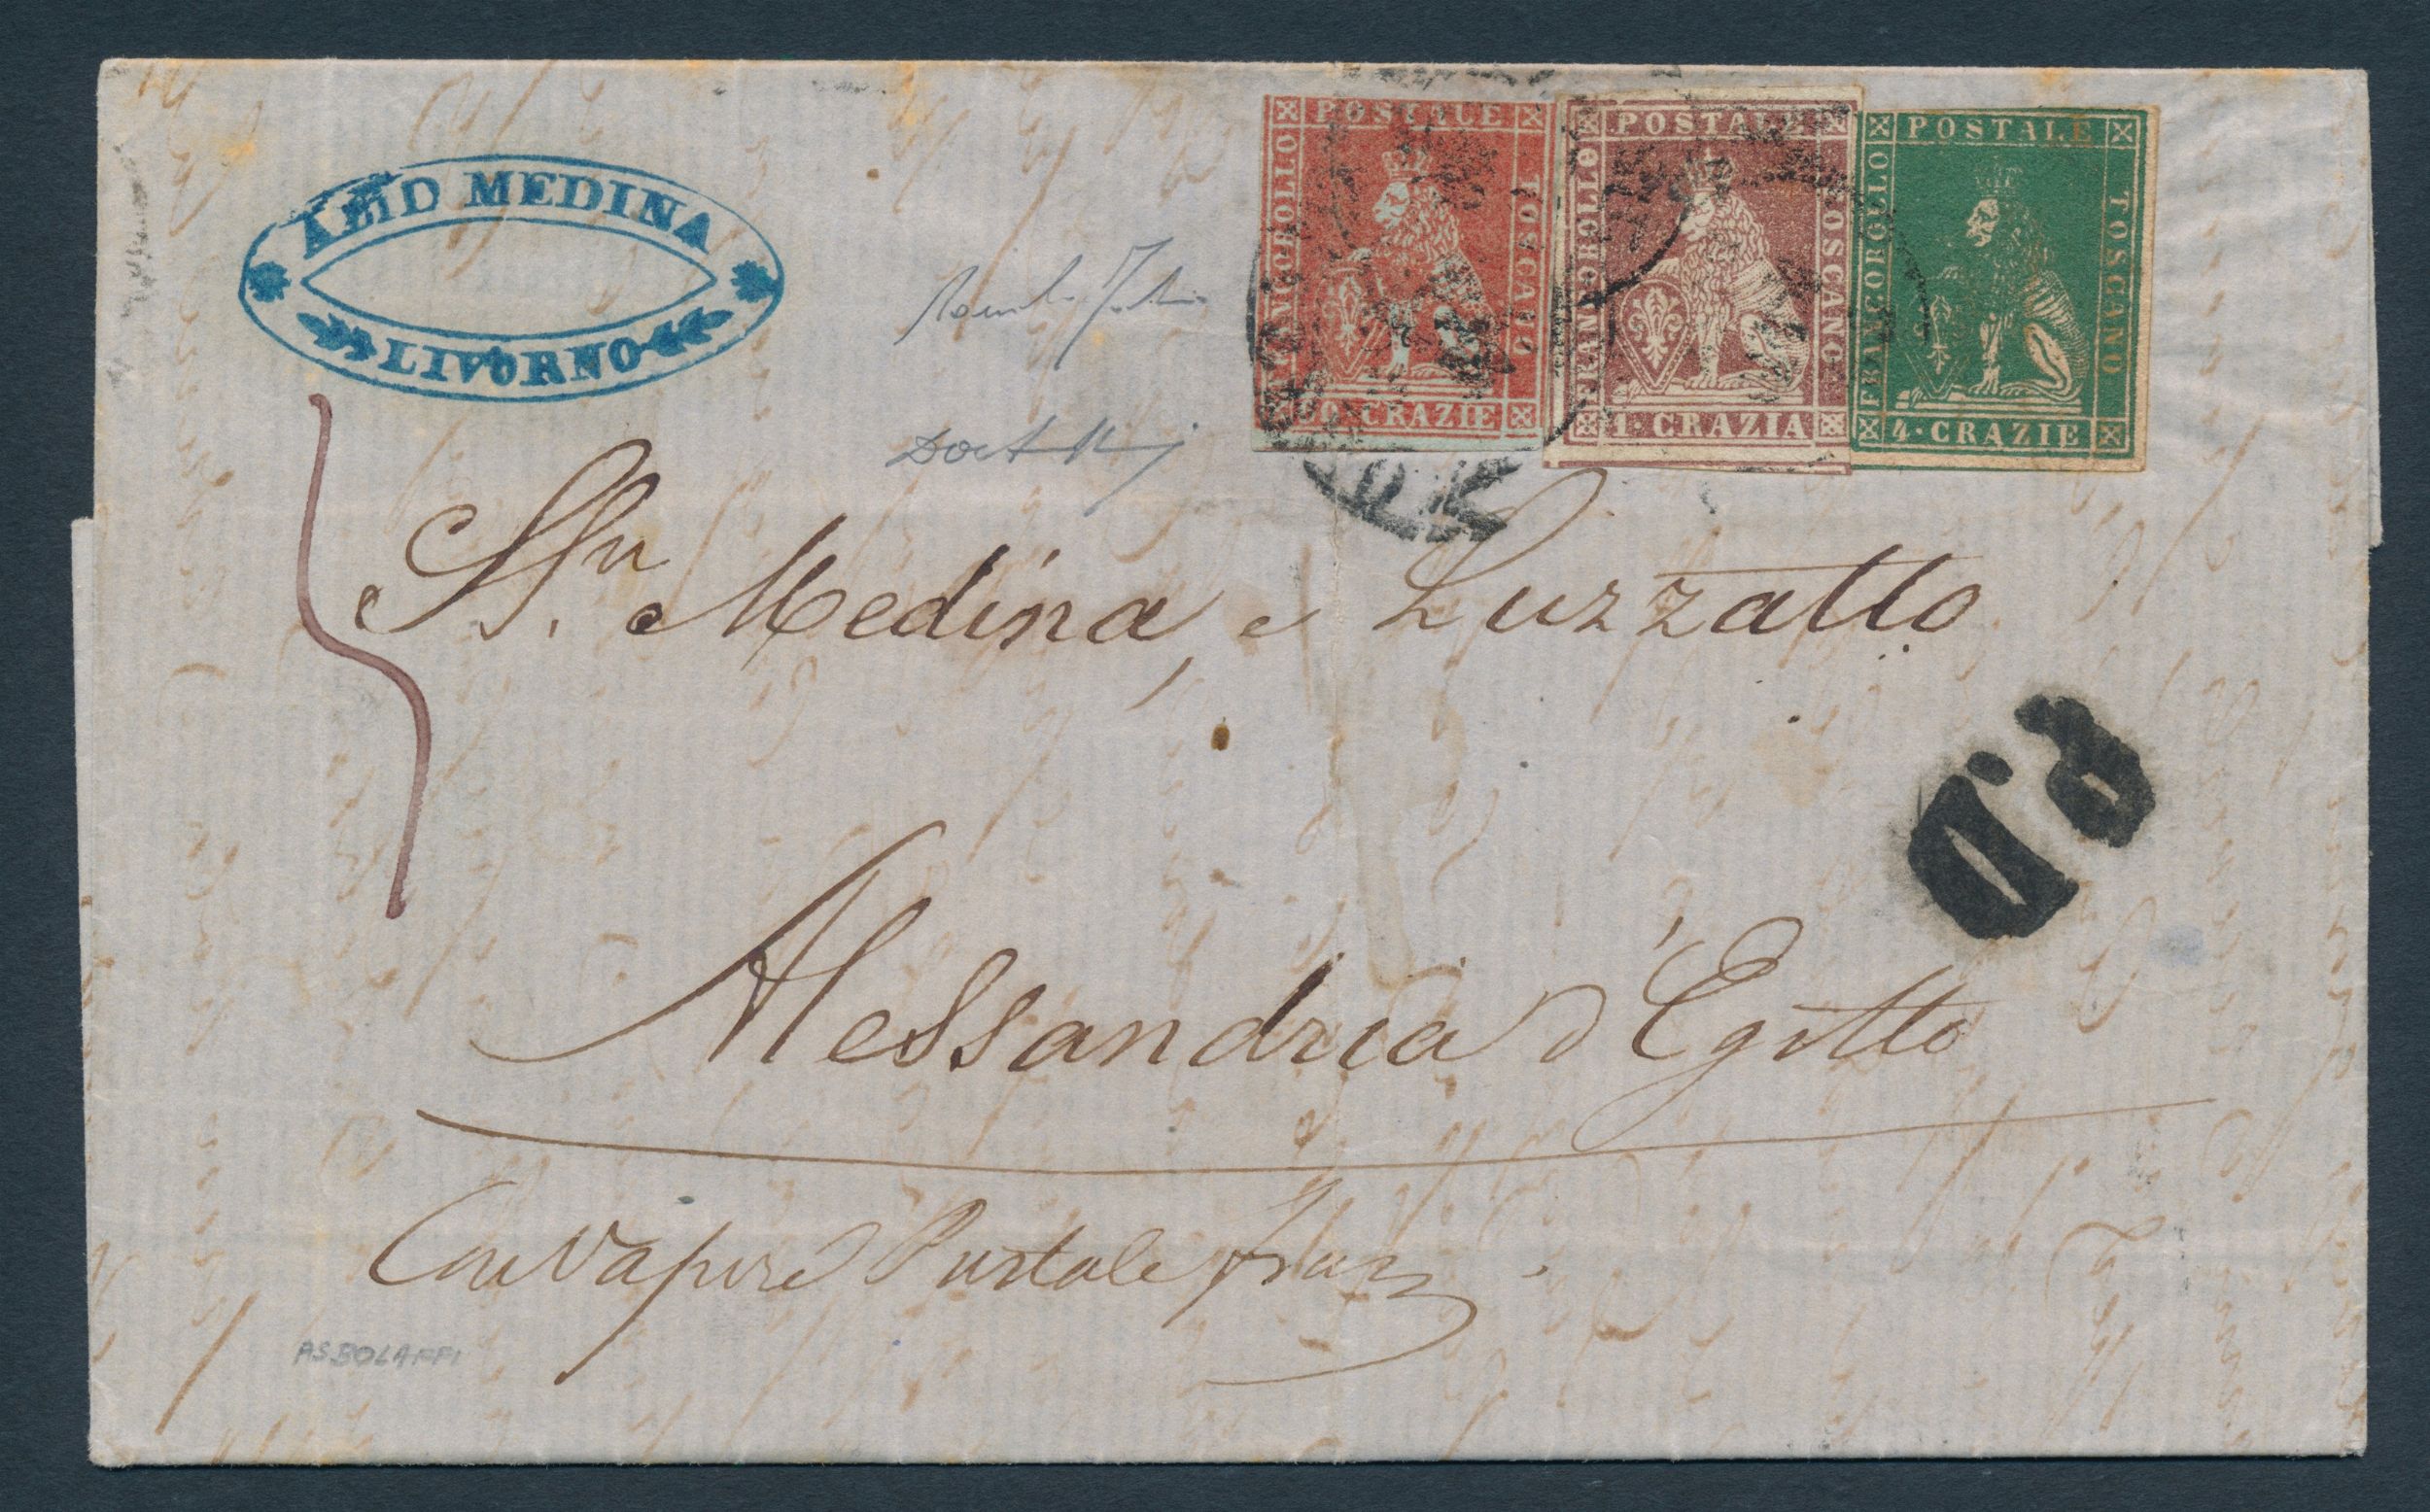 MEDINA
LIVORNO
POSTALE
FRANCOBOLLO
TOSCANO
CRAZIE
POSTALE
FRANCOBOLLO
TOSCANO
1·CRAZIA
POSTALE
FRANCOBOLLO
TOSCANO
4·CRAZIE
SSri. Medina, e Luzzatto
P.D.
Alessandria d'Egitto
Con Vapore Postale Franz
ASBOLAFFI